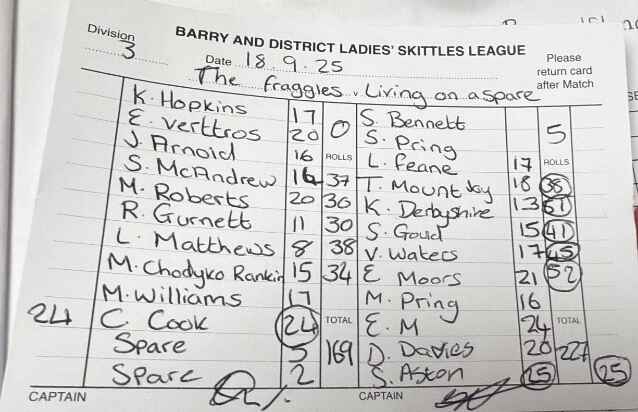 BARRY AND DISTRICT LADIES' SKITTLES LEAGUE
Division 3 Date 18.9.25 Please return card after Match
The Fraggles v Living on a spare
K. Hopkins 17 0 S. Bennett 5
E. Verttros 20 S. Pring
J. Arnold 16 ROLLS L. Feane 17 ROLLS
S. McAndrew 16 37 T. Mount Joy 18 38
M. Roberts 20 30 K. Derbyshire 13 51
R. Gurnett 11 30 S. Goud 15 41
L. Matthews 8 38 V. Waters 17 45
M. Chodyko Rankin 15 34 E Moors 21 52
M. Williams 17 M. Pring 16
24 C. Cook 24 TOTAL E. M 24 TOTAL
Spare 5 169 D. Davies 20 227
Spare 2 S. Aston 25 25
CAPTAIN CAPTAIN